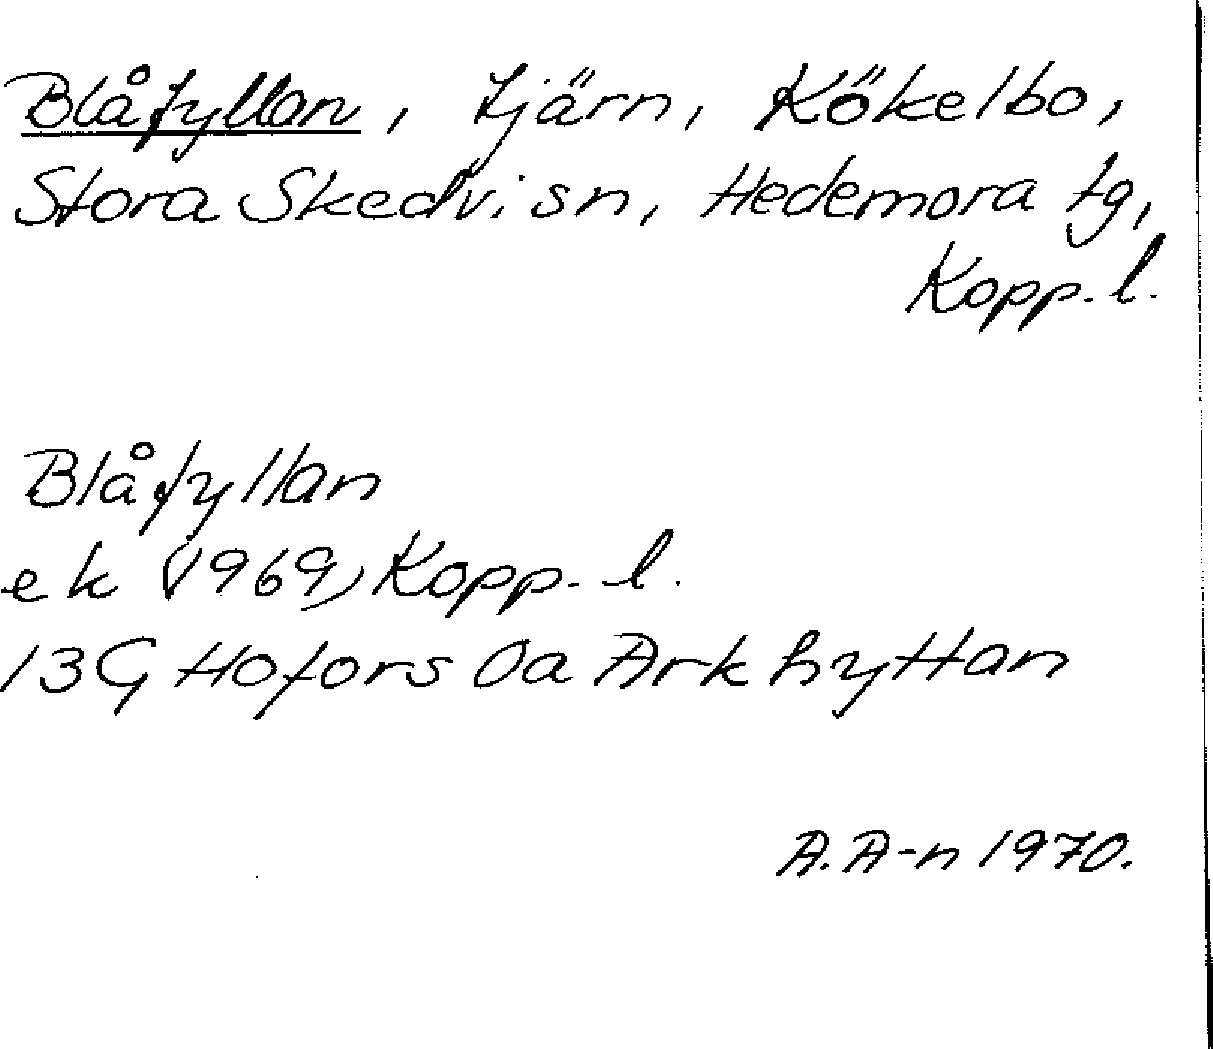 Blåfyllan, tjärn, Kökelbo,
Stora Skedvi sn, Hedemora tg,
Kopp. l.
Blåfyllan
ek (1969) Kopp. l.
13G Hofors 0a Arkhyttan
A. A-n 1970.